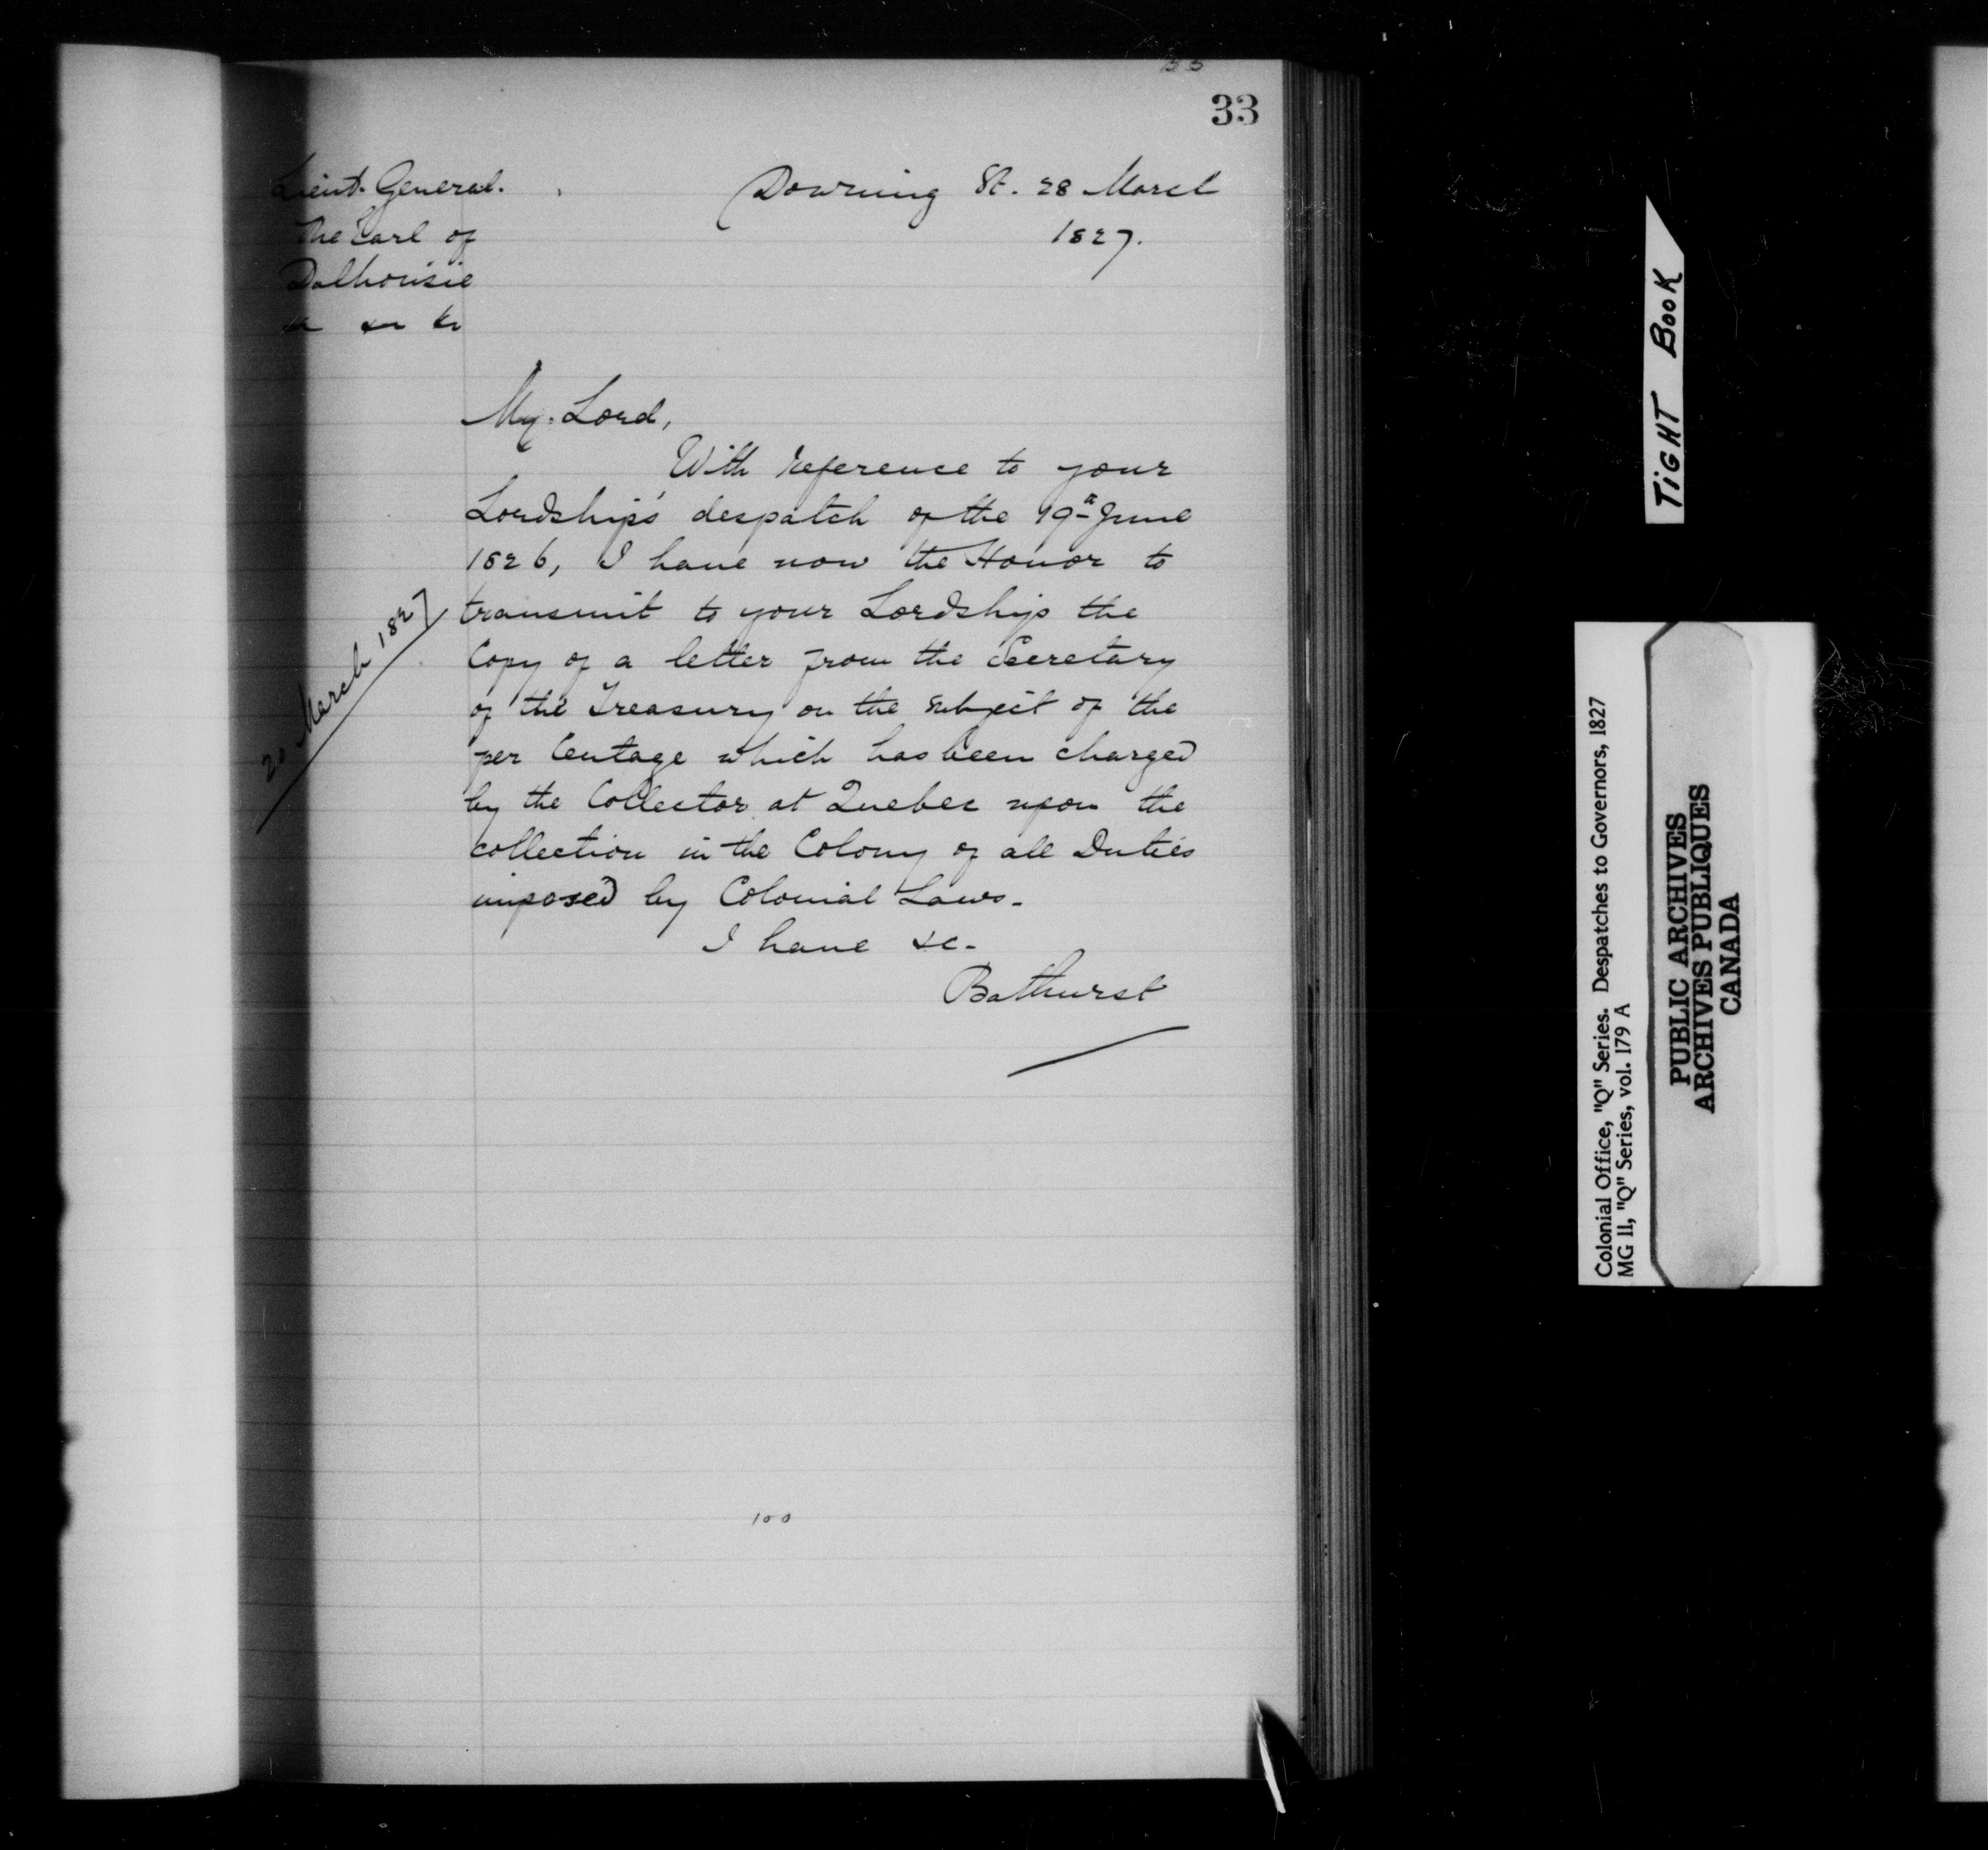 33
Lieut. General.
The Earl of
Dalhousie
&c &c &c
Downing St. 28 March
1827.
My Lord,
With reference to your
Lordship's despatch of the 19th June
1826, I have now the Honor to
transmit to your Lordship the
Copy of a letter from the Secretary
of the Treasury on the subject of the
per Centage which has been charged
by the Collector at Quebec upon the
collection in the Colony of all Duties
imposed by Colonial Laws.
I have &c.
Bathurst
20 March 1827
100
TIGHT BOOK
Colonial Office, "Q" Series. Despatches to Governors, 1827
MG 11, "Q" Series, vol. 179 A
PUBLIC ARCHIVES
ARCHIVES PUBLIQUES
CANADA